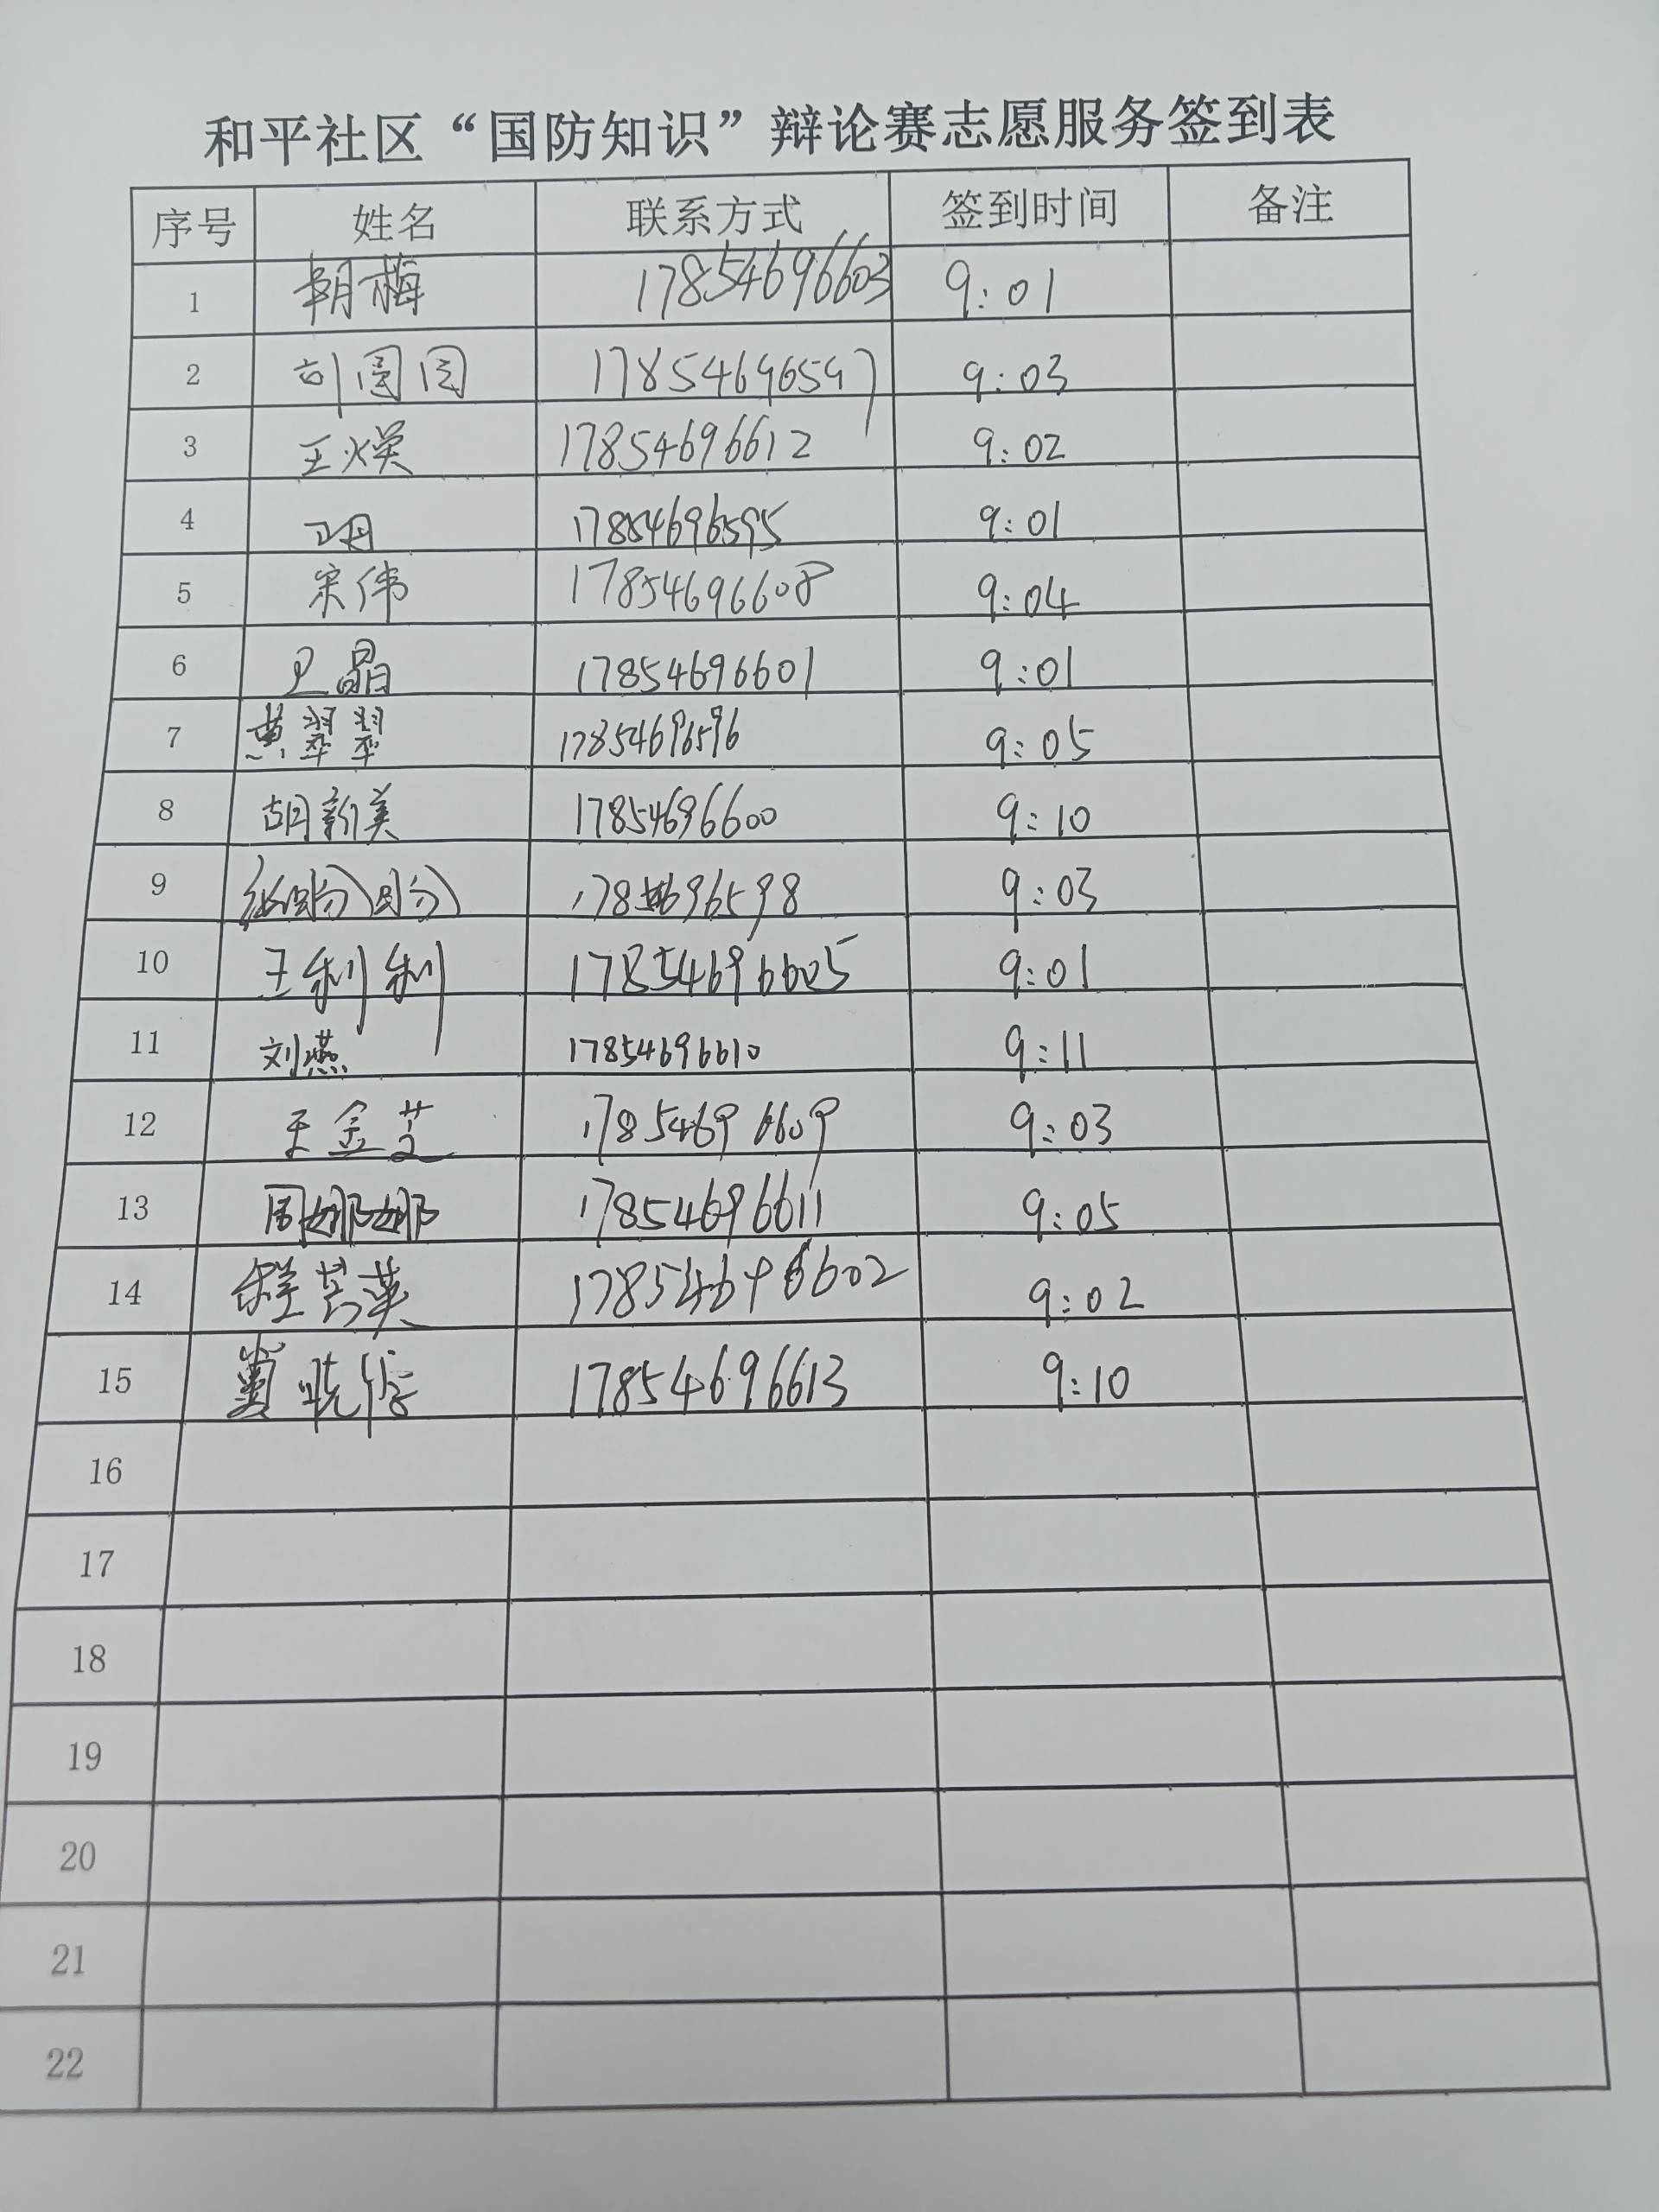 和平社区“国防知识”辩论赛志愿服务签到表
序号 姓名 联系方式 签到时间 备注
1 朝梅 17854696603 9:01
2 刘圆圆 17854696597 9:03
3 王焕英 17854696612 9:02
4 17854696595 9:01
5 宋伟 17854696608 9:04
6 卫晶 17854696601 9:01
7 黄翠翠 17854696596 9:05
8 胡新美 17854696600 9:10
9 9:03
10 王利利 17854696605 9:01
11 刘燕 17854696610 9:11
12 王金芝 17854696609 9:03
13 周娜娜 17854696611 9:05
14 17854696602 9:02
15 17854696613 9:10
16
17
18
19
20
21
22